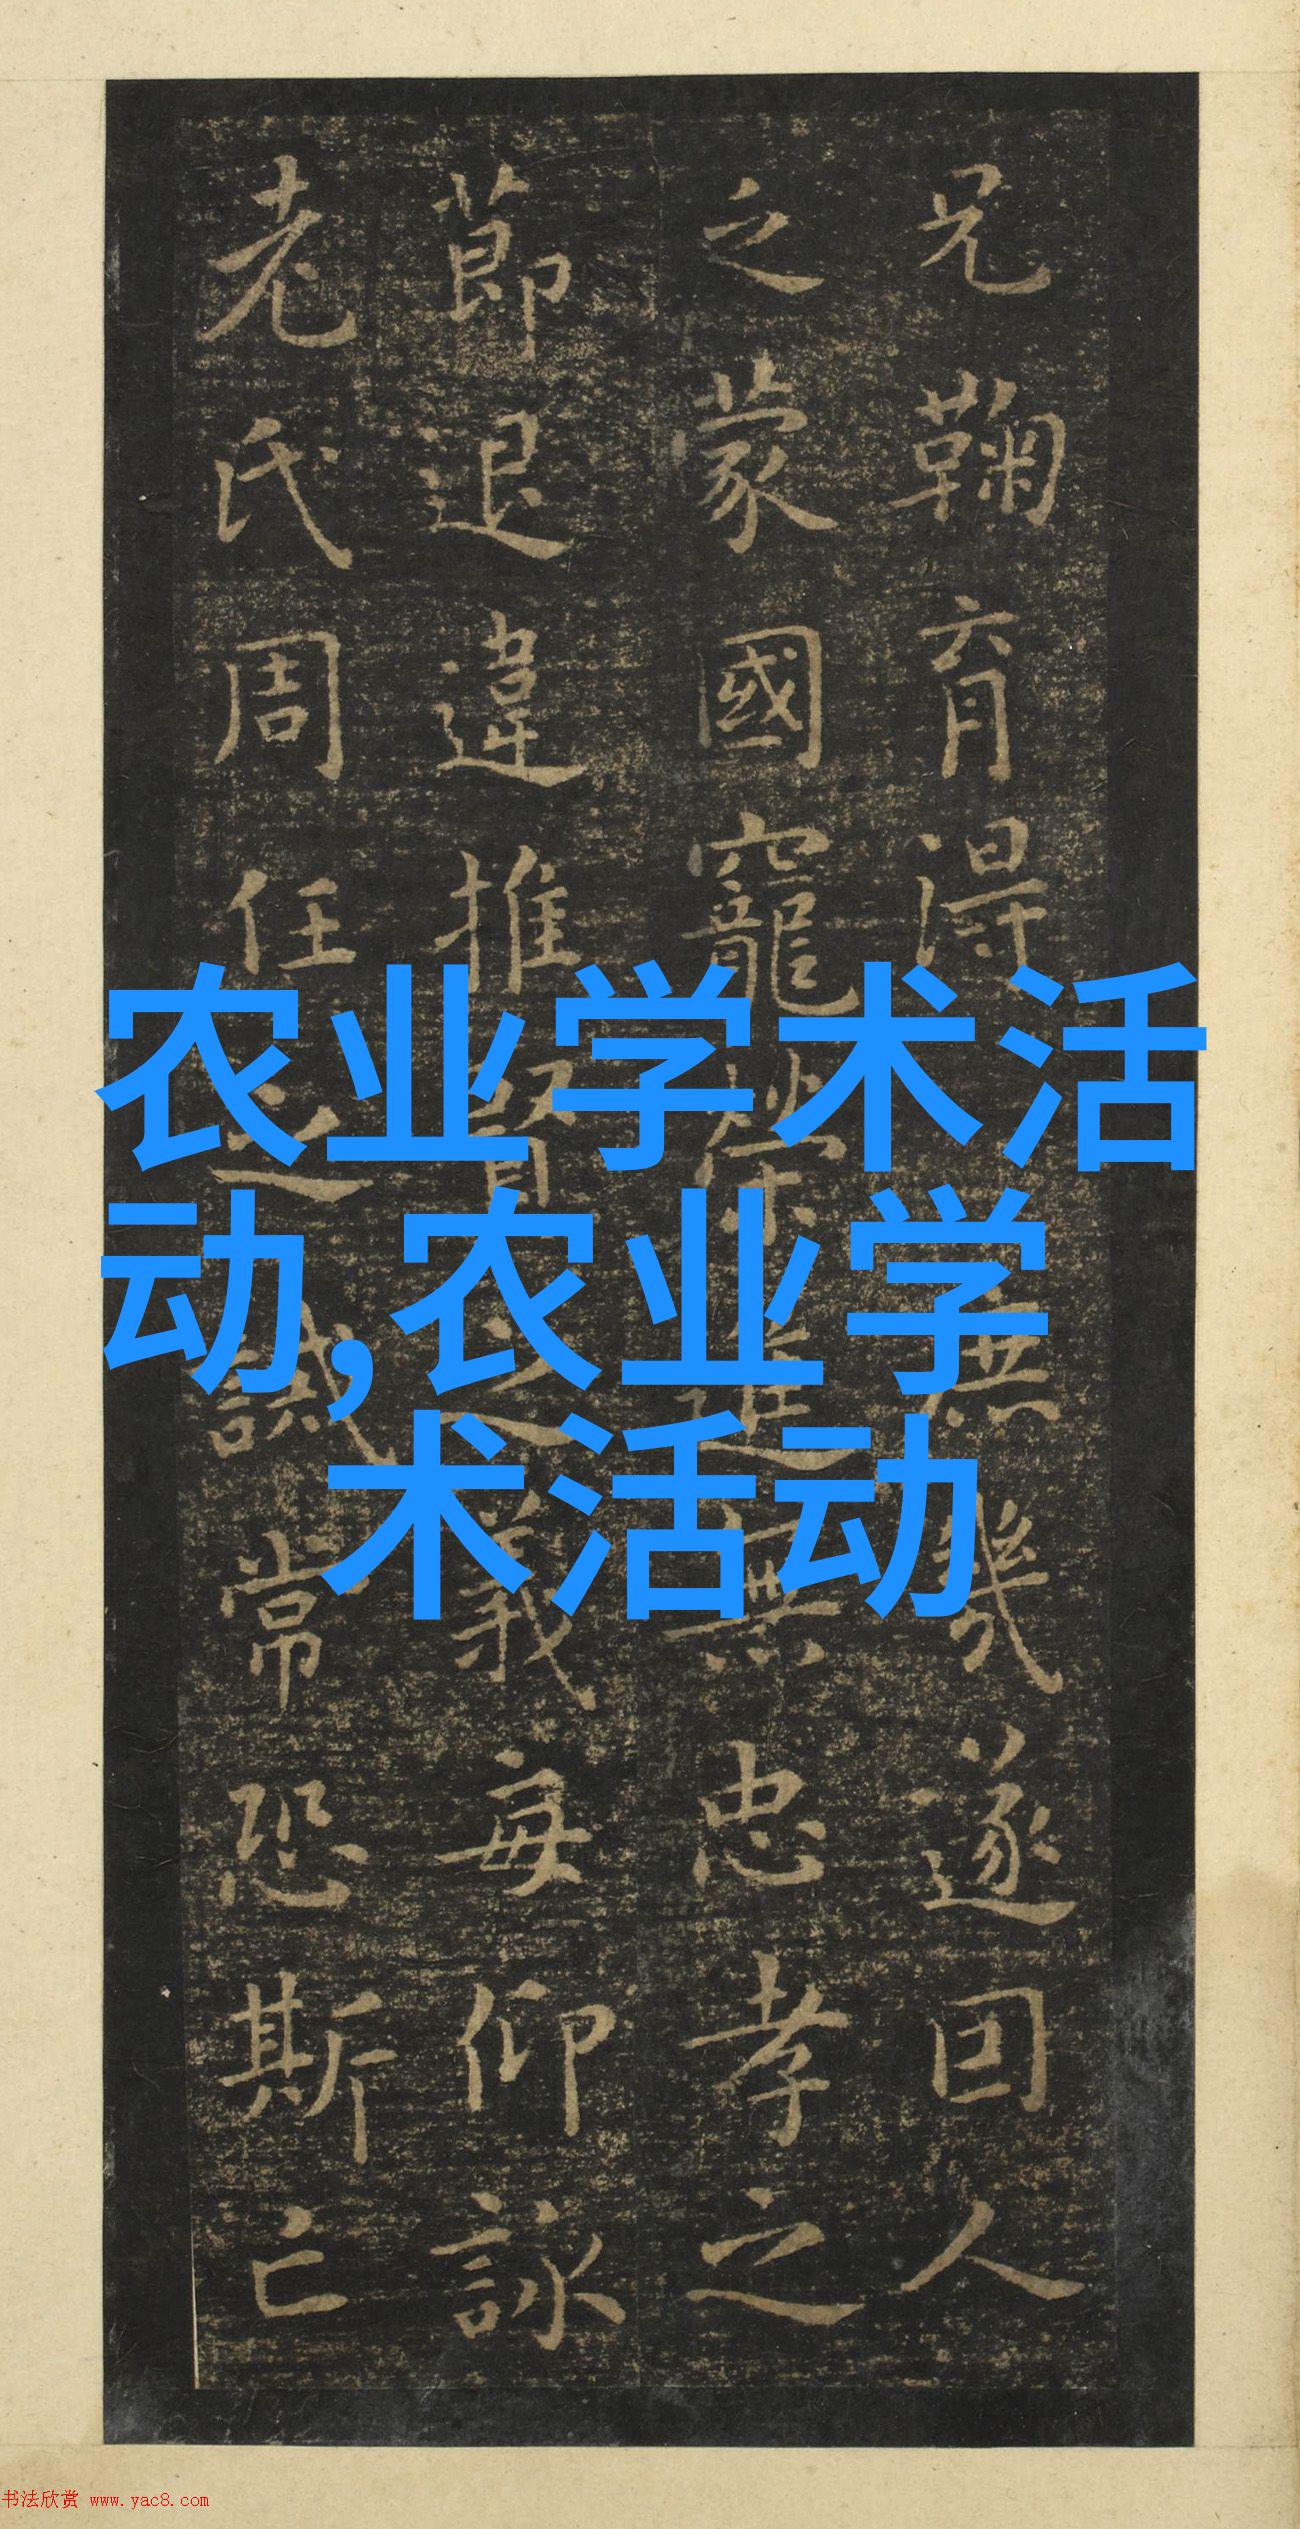 兄鞠育得庶幾遂因人
之蒙國寵榮進無忠孝之
節退違推賢之義每仰詠
老氏周任之誡常恐斯亡
农业学术活
动,农业学
术活动
书法欣赏 www.yac8.com